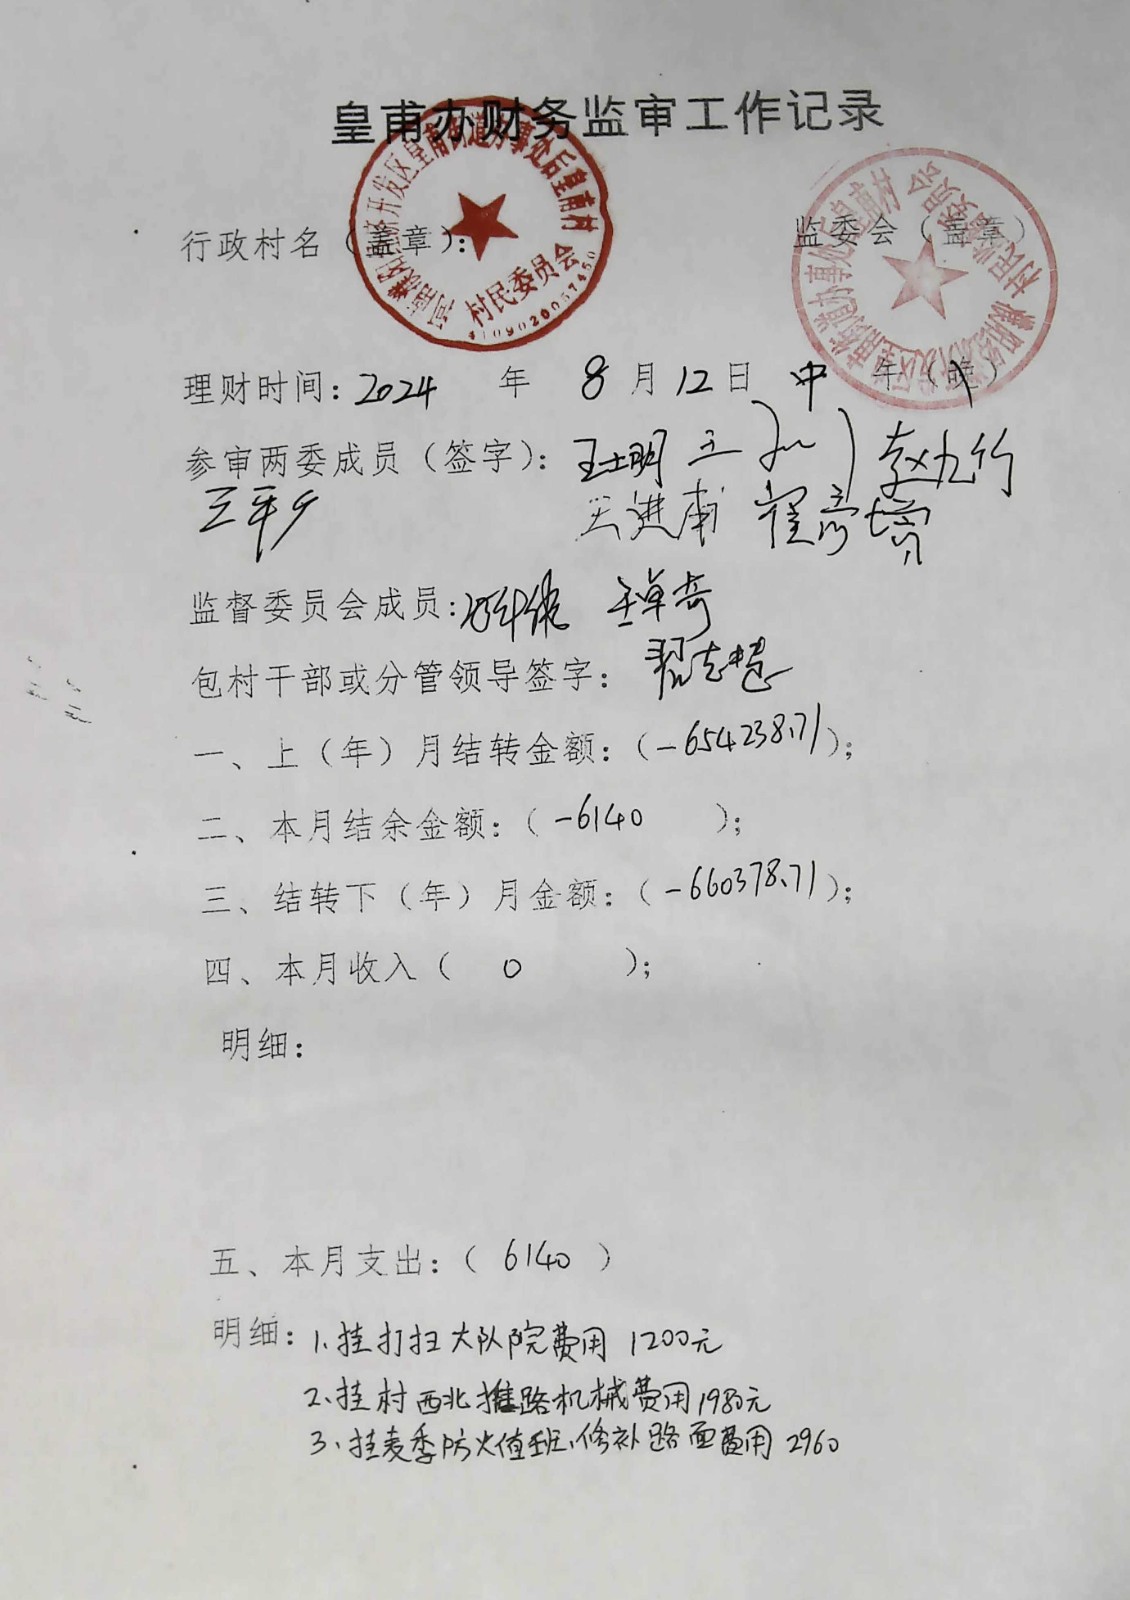 皇甫办财务监审工作记录
行政村名（盖章）： 监委会（盖章）
村民委员会
4109020057450
理财时间：2024 年 8月12日 中 年（晚）
参审两委成员（签字）：王士明 王
监督委员会成员： 王卓奇
包村干部或分管领导签字：翟志慧
一、上（年）月结转金额：（-654238.71）；
二、本月结余金额：（-6140 ）；
三、结转下（年）月金额：（-660378.71）；
四、本月收入（ 0 ）；
明细：
五、本月支出：（ 6140 ）
明细：1、挂打扫大队院费用 1200元
2、挂村西北推路机械费用1980元
3、挂麦季防火值班、修补路面费用2960